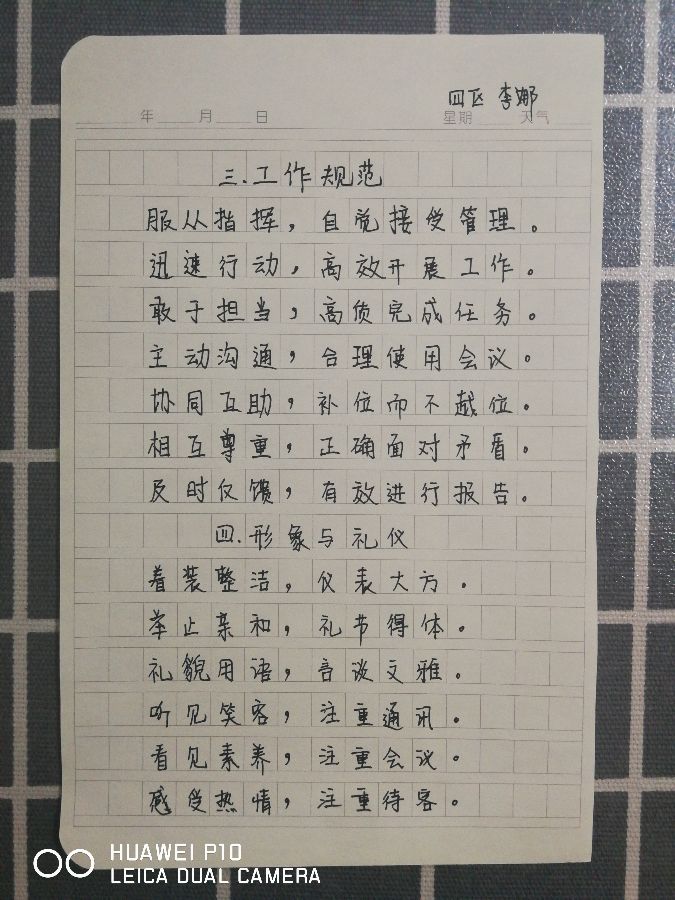 四区 李娜
年 月 日 星期 天气
三.工作规范
服从指挥，自觉接受管理。
迅速行动，高效开展工作。
敢于担当，高质完成任务。
主动沟通，合理使用会议。
协同互助，补位而不越位。
相互尊重，正确面对矛盾。
及时反馈，有效进行报告。
四.形象与礼仪
着装整洁，仪表大方。
举止亲和，礼节得体。
礼貌用语，言谈文雅。
听见笑容，注重通讯。
看见素养，注重会议。
感受热情，注重待客。
HUAWEI P10
LEICA DUAL CAMERA